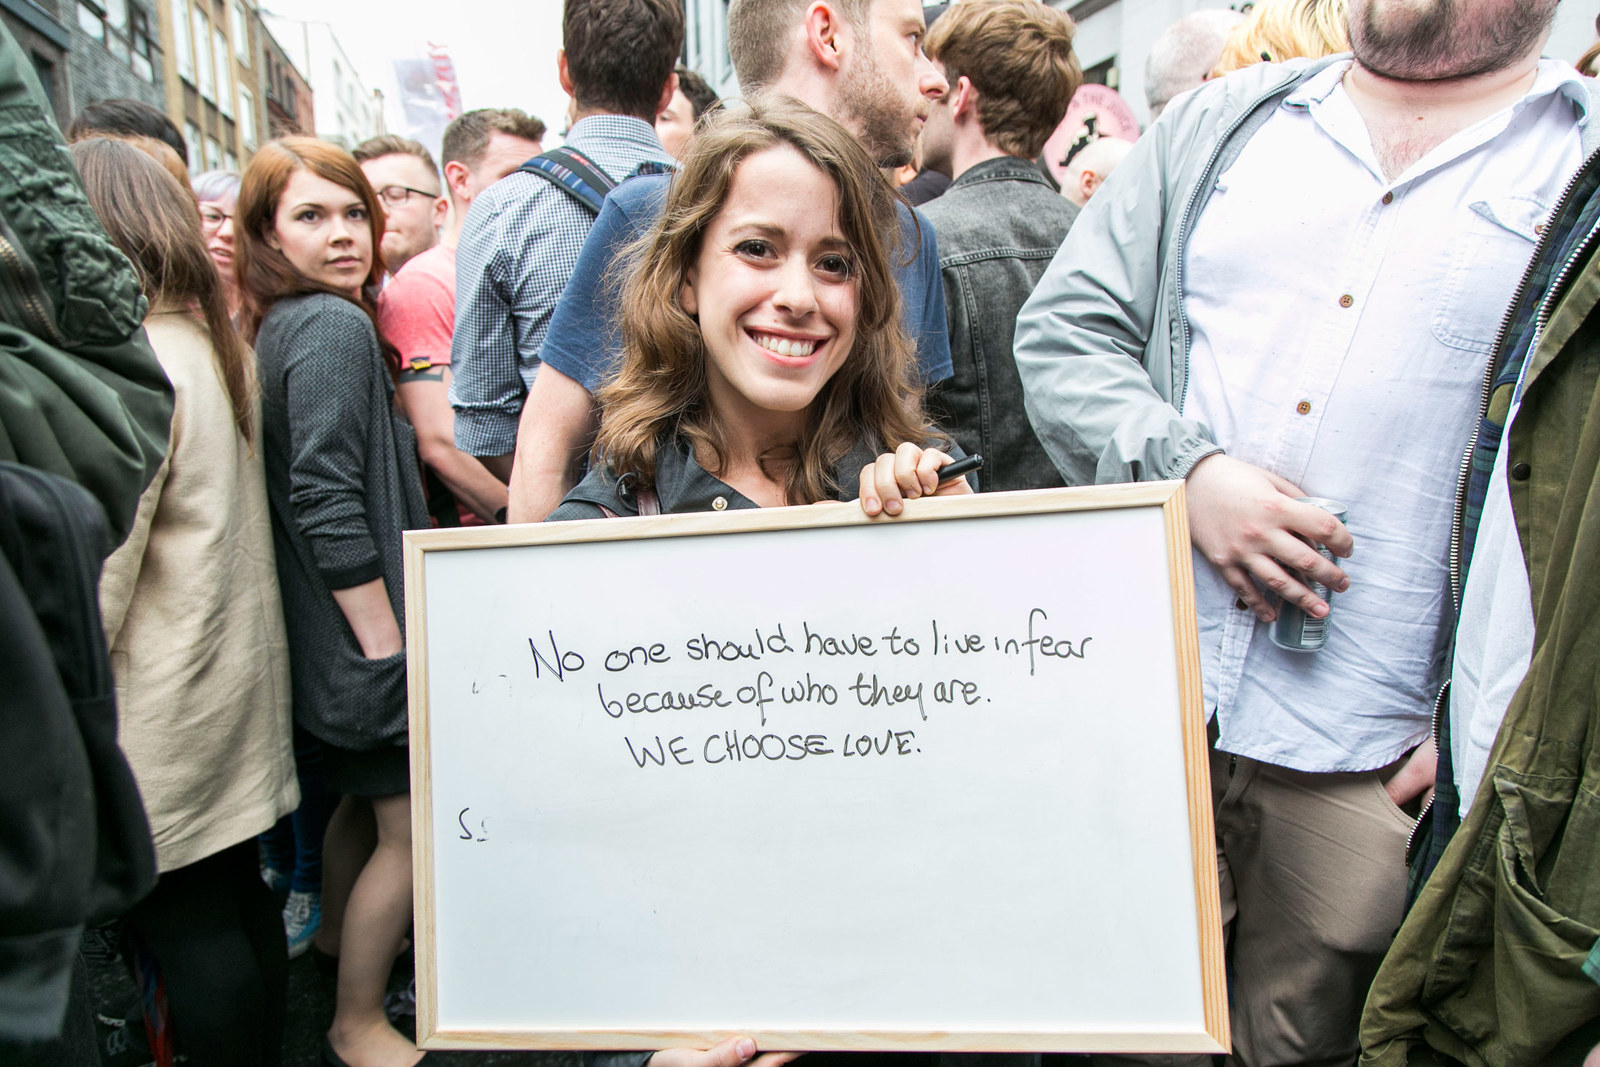 No one should have to live in fear
because of who they are.
WE CHOOSE LOVE.